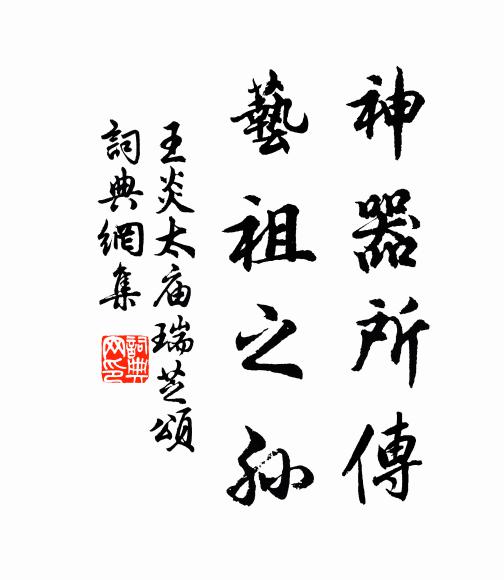 神器所傳
藝祖之孫
王炎太廟瑞芝頌
詞典網集
詞典网印